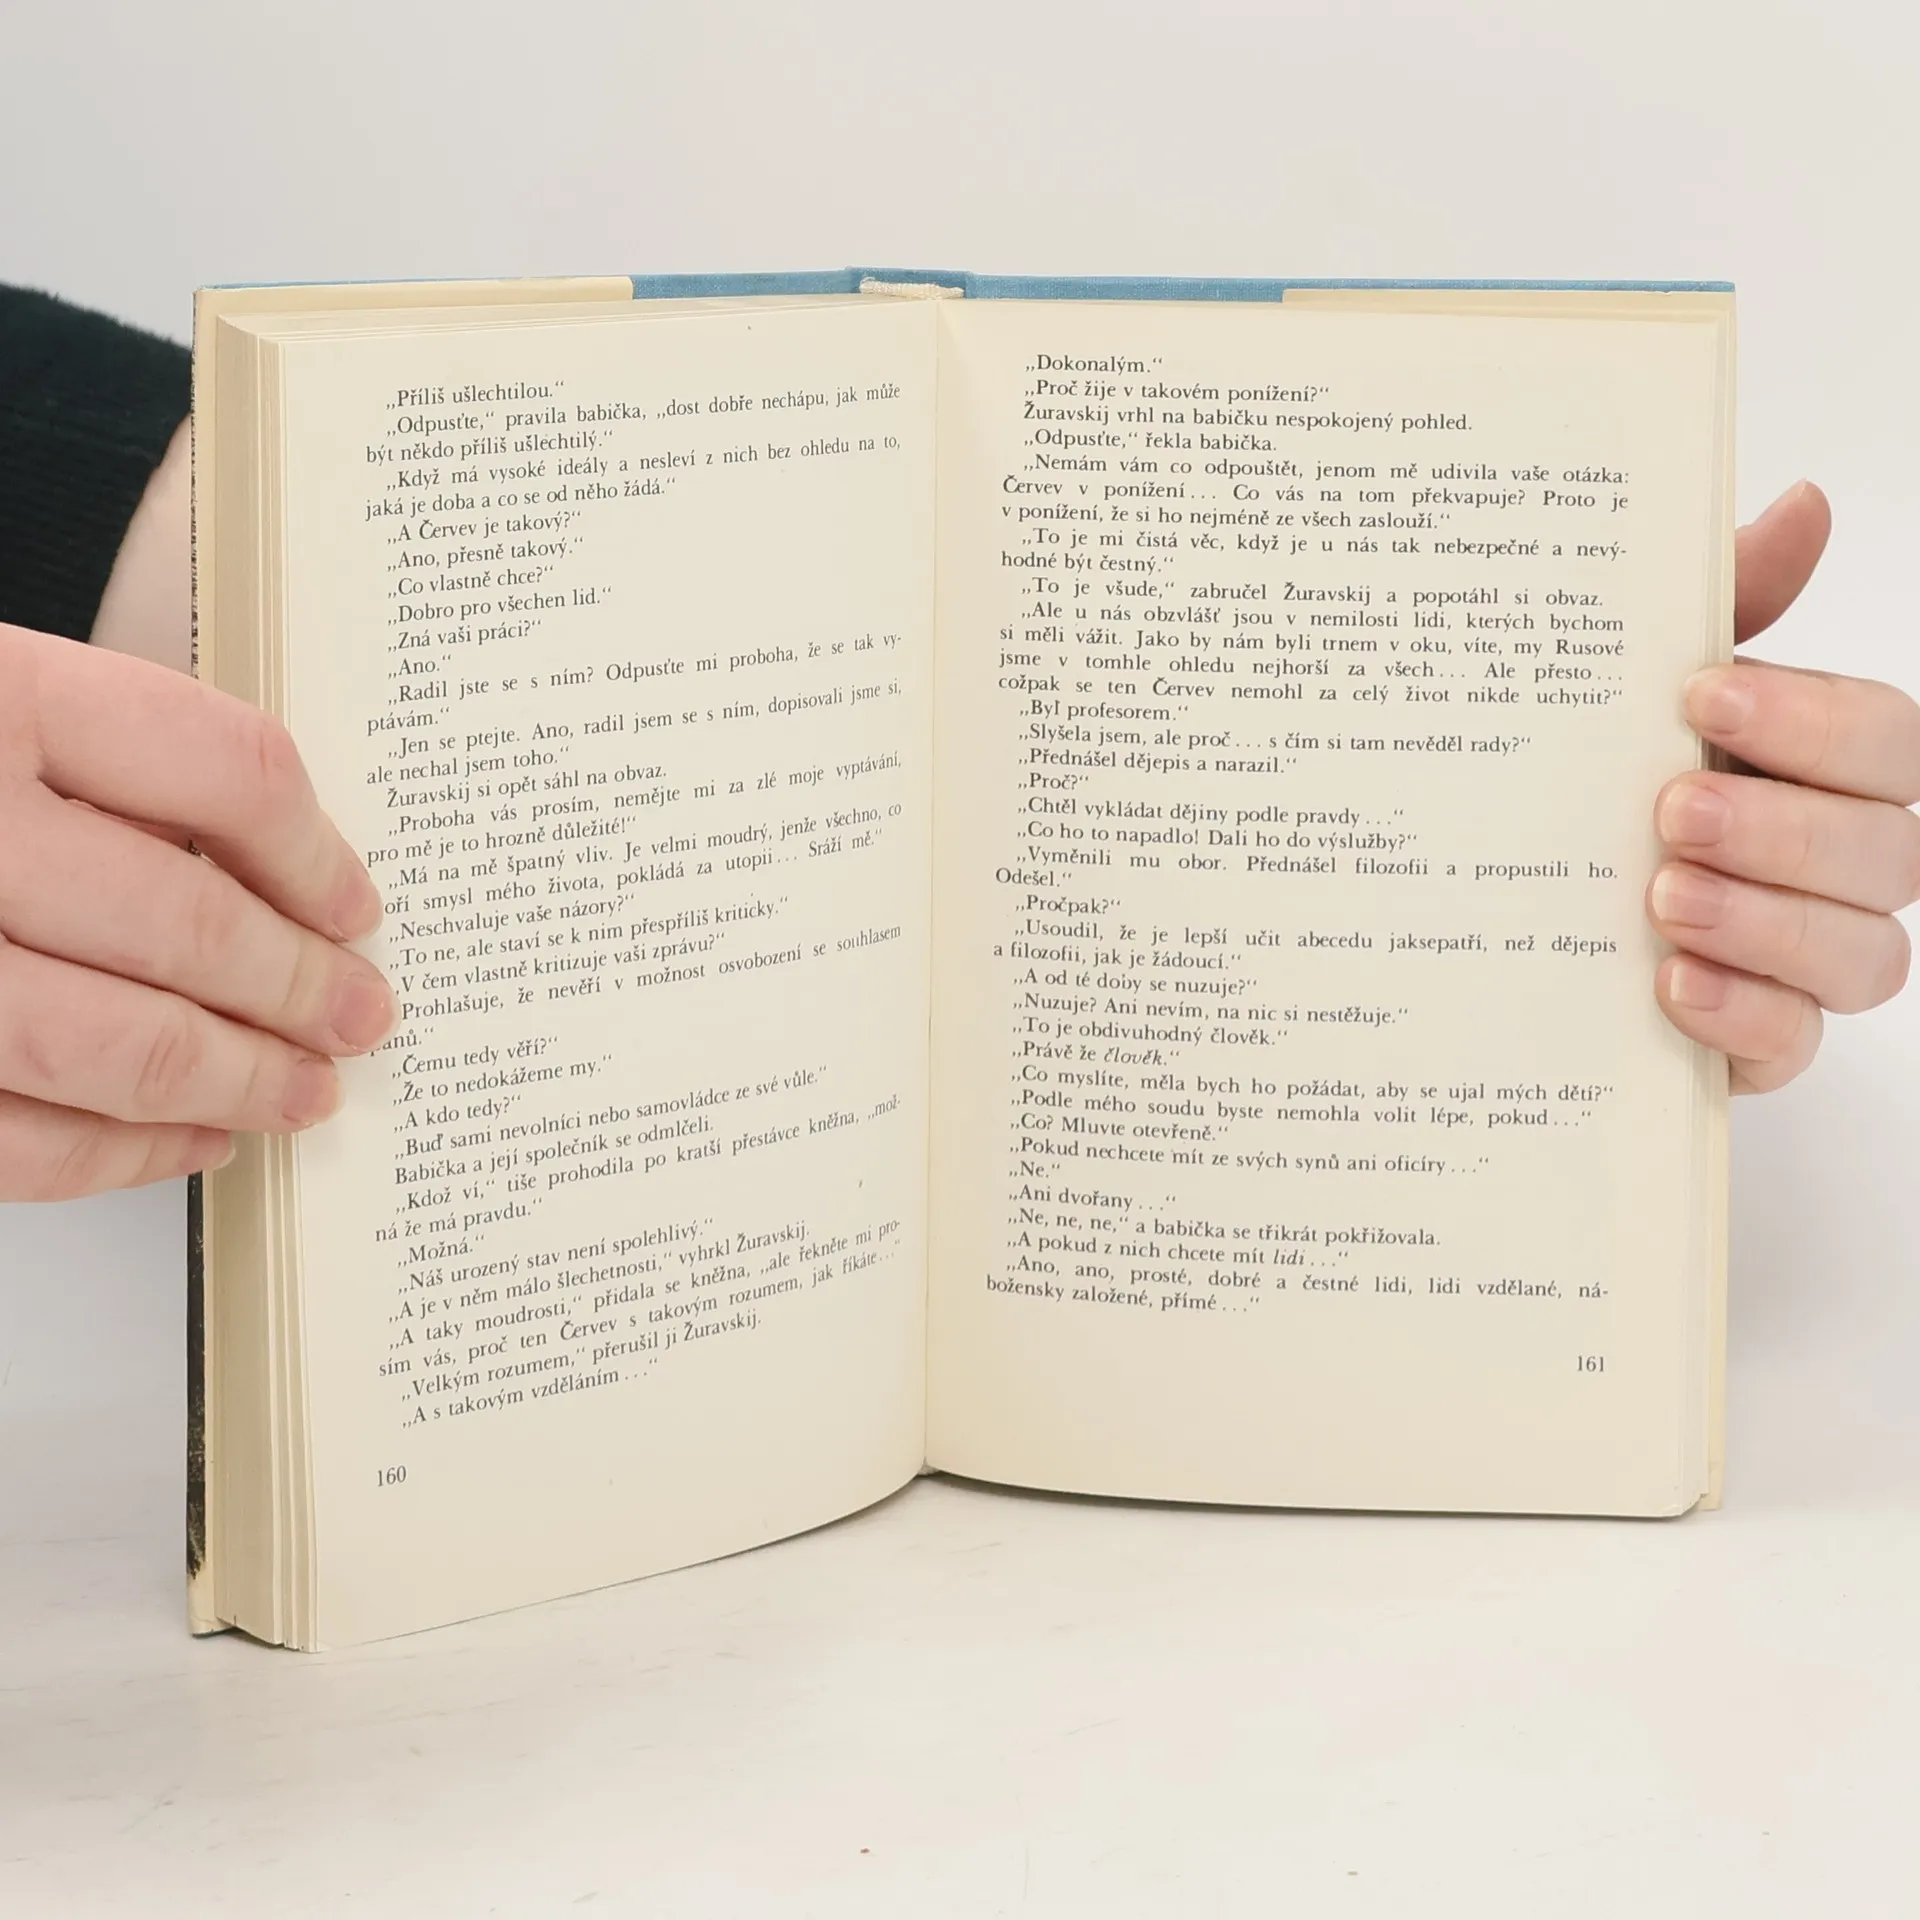 „Příliš ušlechtilou.“
„Odpusťte,“ pravila babička, „dost dobře nechápu, jak může
být někdo příliš ušlechtilý.“
„Když má vysoké ideály a nesleví z nich bez ohledu na to,
jaká je doba a co se od něho žádá.“
„A Červev je takový?“
„Ano, přesně takový.“
„Co vlastně chce?“
„Dobro pro všechen lid.“
„Zná vaši práci?“
„Ano.“
„Radil jste se s ním? Odpusťte mi proboha, že se tak vy-
ptávám.“
„Jen se ptejte. Ano, radil jsem se s ním, dopisovali jsme si,
ale nechal jsem toho.“
Žuravskij si opět sáhl na obvaz.
„Proboha vás prosím, nemějte mi za zlé moje vyptávání,
pro mě je to hrozně důležité!“
„Má na mě špatný vliv. Je velmi moudrý, jenže všechno, co
oří smysl mého života, pokládá za utopii... Sráží mě.“
„Neschvaluje vaše názory?“
„To ne, ale staví se k nim přespříliš kriticky.“
„V čem vlastně kritizuje vaši zprávu?“
Prohlašuje, že nevěří v možnost osvobození se souhlasem
panů.“
„Čemu tedy věří?“
„Že to nedokážeme my.“
„A kdo tedy?“
„Buď sami nevolníci nebo samovládce ze své vůle.“
Babička a její společník se odmlčeli.
„Kdož ví,“ tiše prohodila po kratší přestávce kněžna, „mož-
ná že má pravdu.“
„Možná.“
„Náš urozený stav není spolehlivý.“
„A je v něm málo šlechetnosti,“ vyhrkl Žuravskij.
„A taky moudrosti,“ přidala se kněžna, „ale řekněte mi pro-
sím vás, proč ten Červev s takovým rozumem, jak říkáte...“
„Velkým rozumem,“ přerušil ji Žuravskij.
„A s takovým vzděláním...“
160
„Dokonalým.“
„Proč žije v takovém ponížení?“
Žuravskij vrhl na babičku nespokojený pohled.
„Odpusťte,“ řekla babička.
„Nemám vám co odpouštět, jenom mě udivila vaše otázka:
Červev v ponížení... Co vás na tom překvapuje? Proto je
v ponížení, že si ho nejméně ze všech zaslouží.“
„To je mi čistá věc, když je u nás tak nebezpečné a nevý-
hodné být čestný.“
„To je všude,“ zabručel Žuravskij a popotáhl si obvaz.
„Ale u nás obzvlášť jsou v nemilosti lidi, kterých bychom
si měli vážit. Jako by nám byli trnem v oku, víte, my Rusové
jsme v tomhle ohledu nejhorší za všech... Ale přesto...
cožpak se ten Červev nemohl za celý život nikde uchytit?“
„Byl profesorem.“
„Slyšela jsem, ale proč... s čím si tam nevěděl rady?“
„Přednášel dějepis a narazil.“
„Proč?“
„Chtěl vykládat dějiny podle pravdy...“
„Co ho to napadlo! Dali ho do výslužby?“
„Vyměnili mu obor. Přednášel filozofii a propustili ho.
Odešel.“
„Pročpak?“
„Usoudil, že je lepší učit abecedu jaksepatří, než dějepis
a filozofii, jak je žádoucí.“
„A od té doby se nuzuje?“
„Nuzuje? Ani nevím, na nic si nestěžuje.“
„To je obdivuhodný člověk.“
„Právě že člověk.“
„Co myslíte, měla bych ho požádat, aby se ujal mých dětí?“
„Podle mého soudu byste nemohla volit lépe, pokud...“
„Co? Mluvte otevřeně.“
„Pokud nechcete mít ze svých synů ani oficíry...“
„Ne.“
„Ani dvořany...“
„Ne, ne, ne,“ a babička se třikrát pokřižovala.
„A pokud z nich chcete mít lidi...“
„Ano, ano, prosté, dobré a čestné lidi, lidi vzdělané, ná-
božensky založené, přímé...“
161